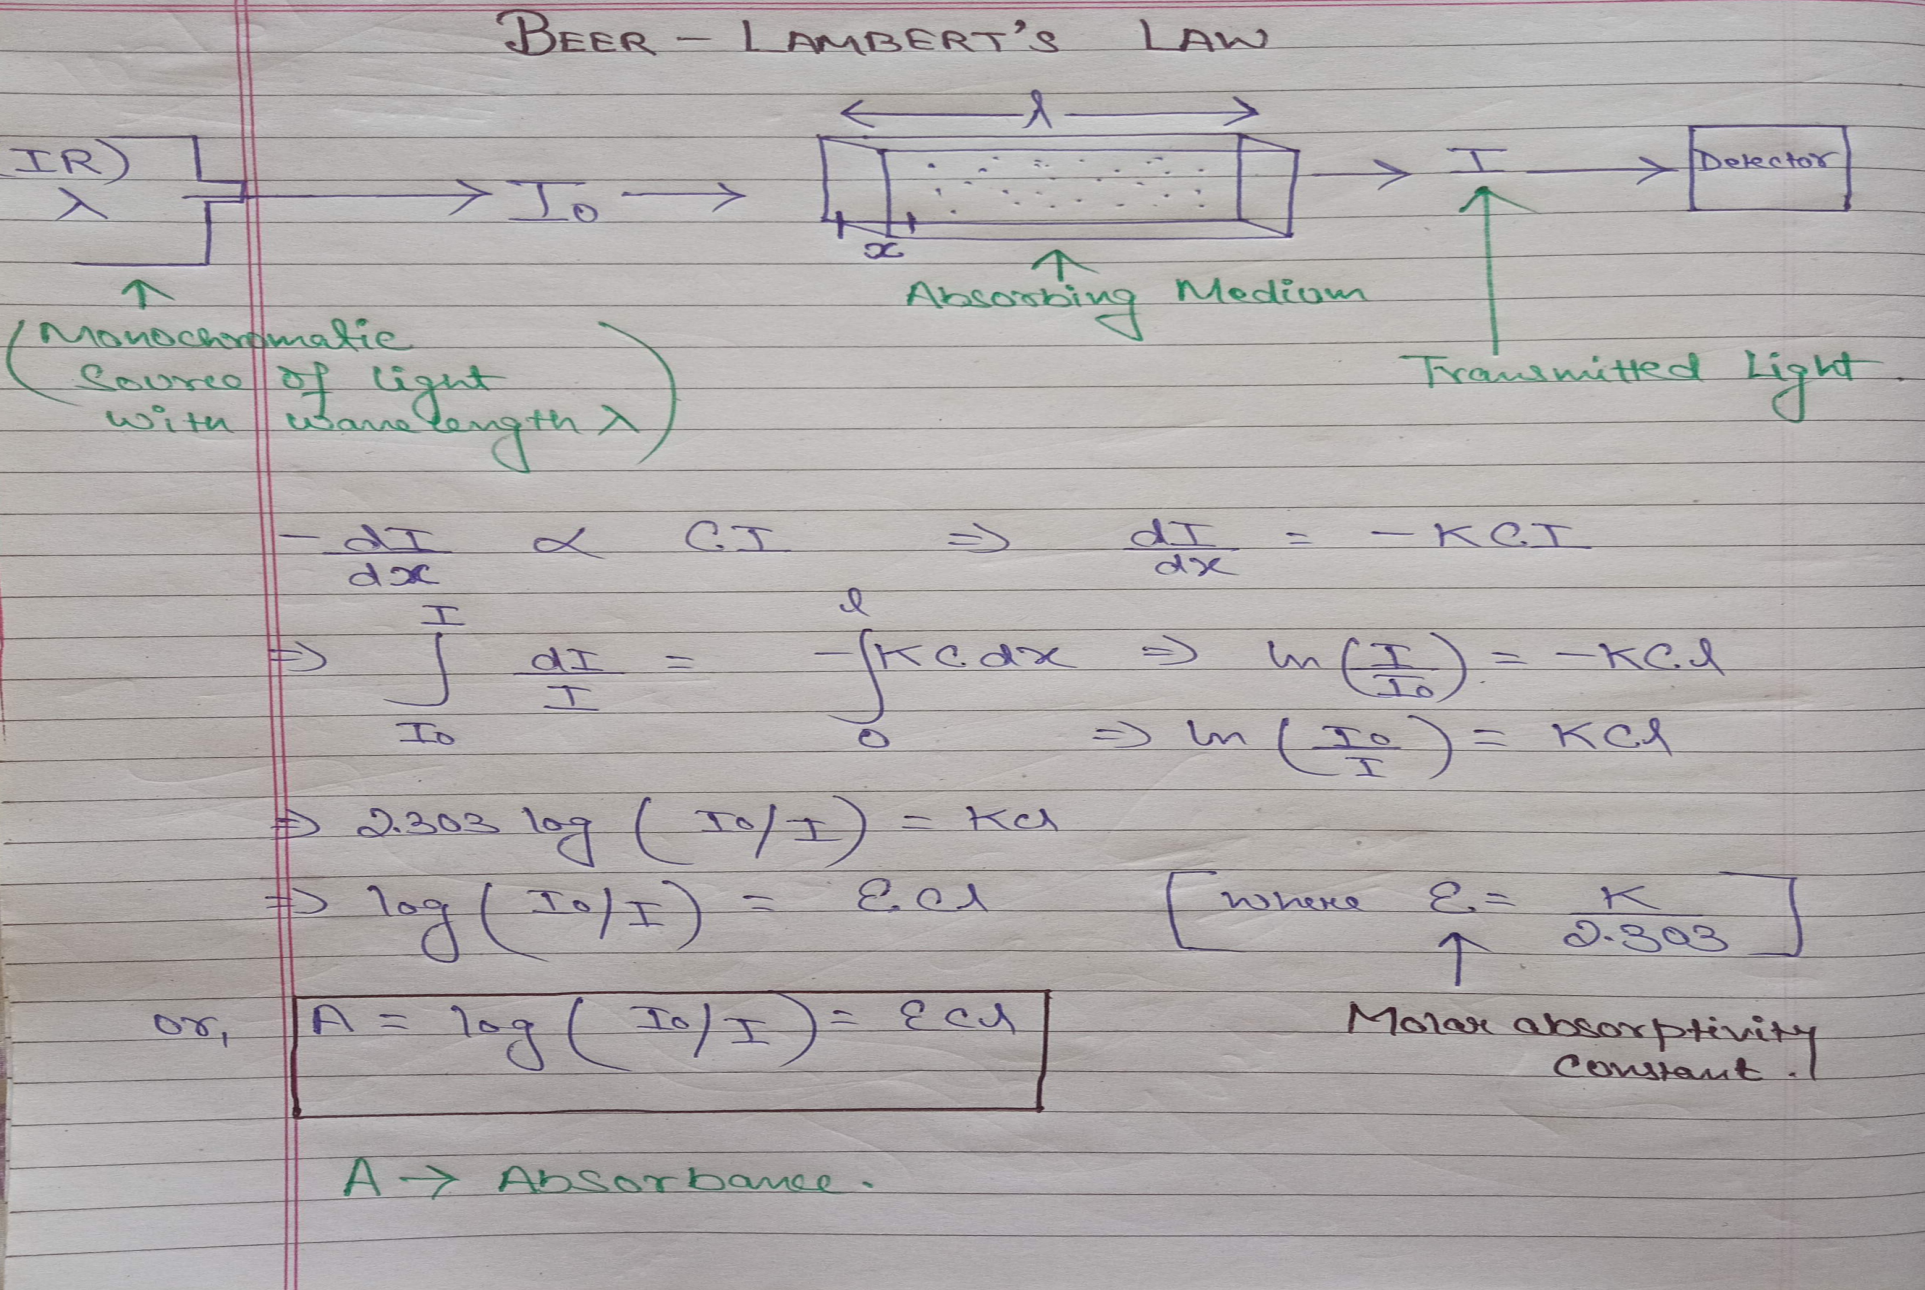 BEER – LAMBERT'S LAW
l
IR)
λ
I₀
I
Detector
x
Absorbing Medium
(Monochromatic
Source of light
with wavelength λ)
Transmitted Light.
-dI/dx ∝ C.I ⇒ dI/dx = -KC.I
⇒ ∫_{I₀}^{I} dI/I = -∫_{0}^{l} KC.dx ⇒ ln(I/I₀) = -KC.l
⇒ ln(I₀/I) = KCl
⇒ 2.303 log (I₀/I) = KCl
⇒ log (I₀/I) = ε.Cl [where ε = K/2.303]
or, A = log (I₀/I) = εCl
Molar absorptivity
constant.
A → Absorbance.